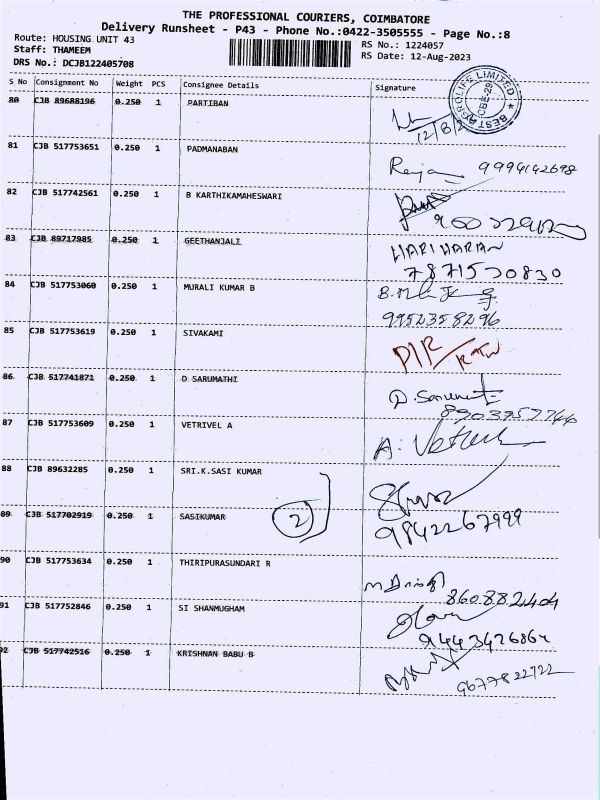 THE PROFESSIONAL COURIERS, COIMBATORE
Delivery Runsheet - P43 - Phone No.:0422-3505555 - Page No.:8
Route: HOUSING UNIT 43
RS No.: 1224057
Staff: THAMEEM
RS Date: 12-Aug-2023
DRS No.: DCJB122405708
S No Consignment No Weight PCS Consignee Details Signature
80 CJB 89688196 0.250 1 PARTIBAN
12/8/2
81 CJB 517753651 0.250 1 PADMANABAN
9994142698
82 CJB 517742561 0.250 1 B KARTHIKAMAHESWARI
83 CJB 89717985 0.250 1 GEETHANJALI HARI HARAN
7871530830
84 CJB 517753060 0.250 1 MURALI KUMAR B
9952358296
85 CJB 517753619 0.250 1 SIVAKAMI
86 CJB 517741871 0.250 1 D SARUMATHI
8903957744
87 CJB 517753609 0.250 1 VETRIVEL A
88 CJB 89632285 0.250 1 SRI.K.SASI KUMAR
89 CJB 517702919 0.250 1 SASIKUMAR 2 9842267999
90 CJB 517753634 0.250 1 THIRIPURASUNDARI R
860882404
91 CJB 517752846 0.250 1 SI SHANMUGHAM
9443426864
92 CJB 517742516 0.250 1 KRISHNAN BABU B
9677822722